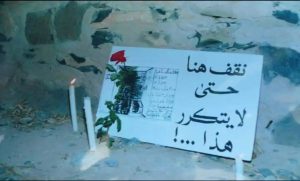 نقف هنا
حتى
لا يتكرر
هذا ...!